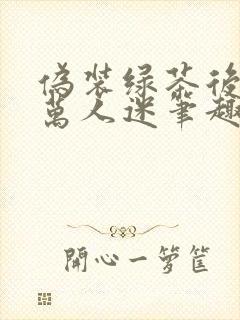 偽裝綠茶後
萬人迷筆趣
開心一籮筐